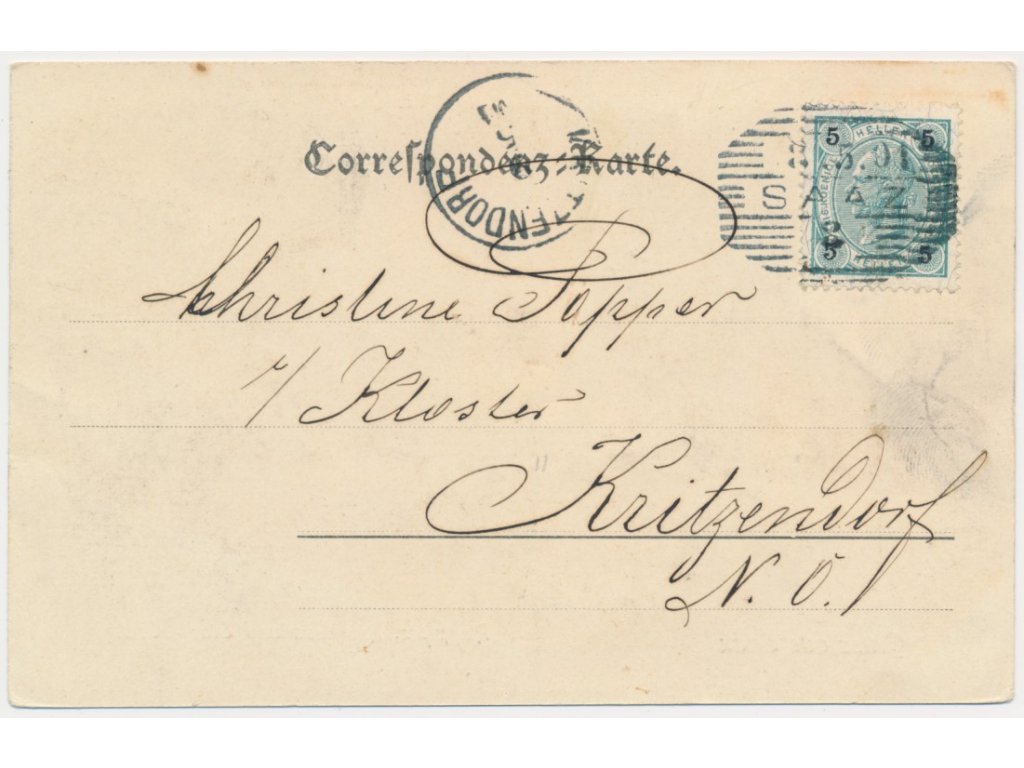 Correspondenz-Karte.
5 HELLER 5
5 HELLER 5
Christine Popper
Kloster
Kritzendorf
N. Ö.